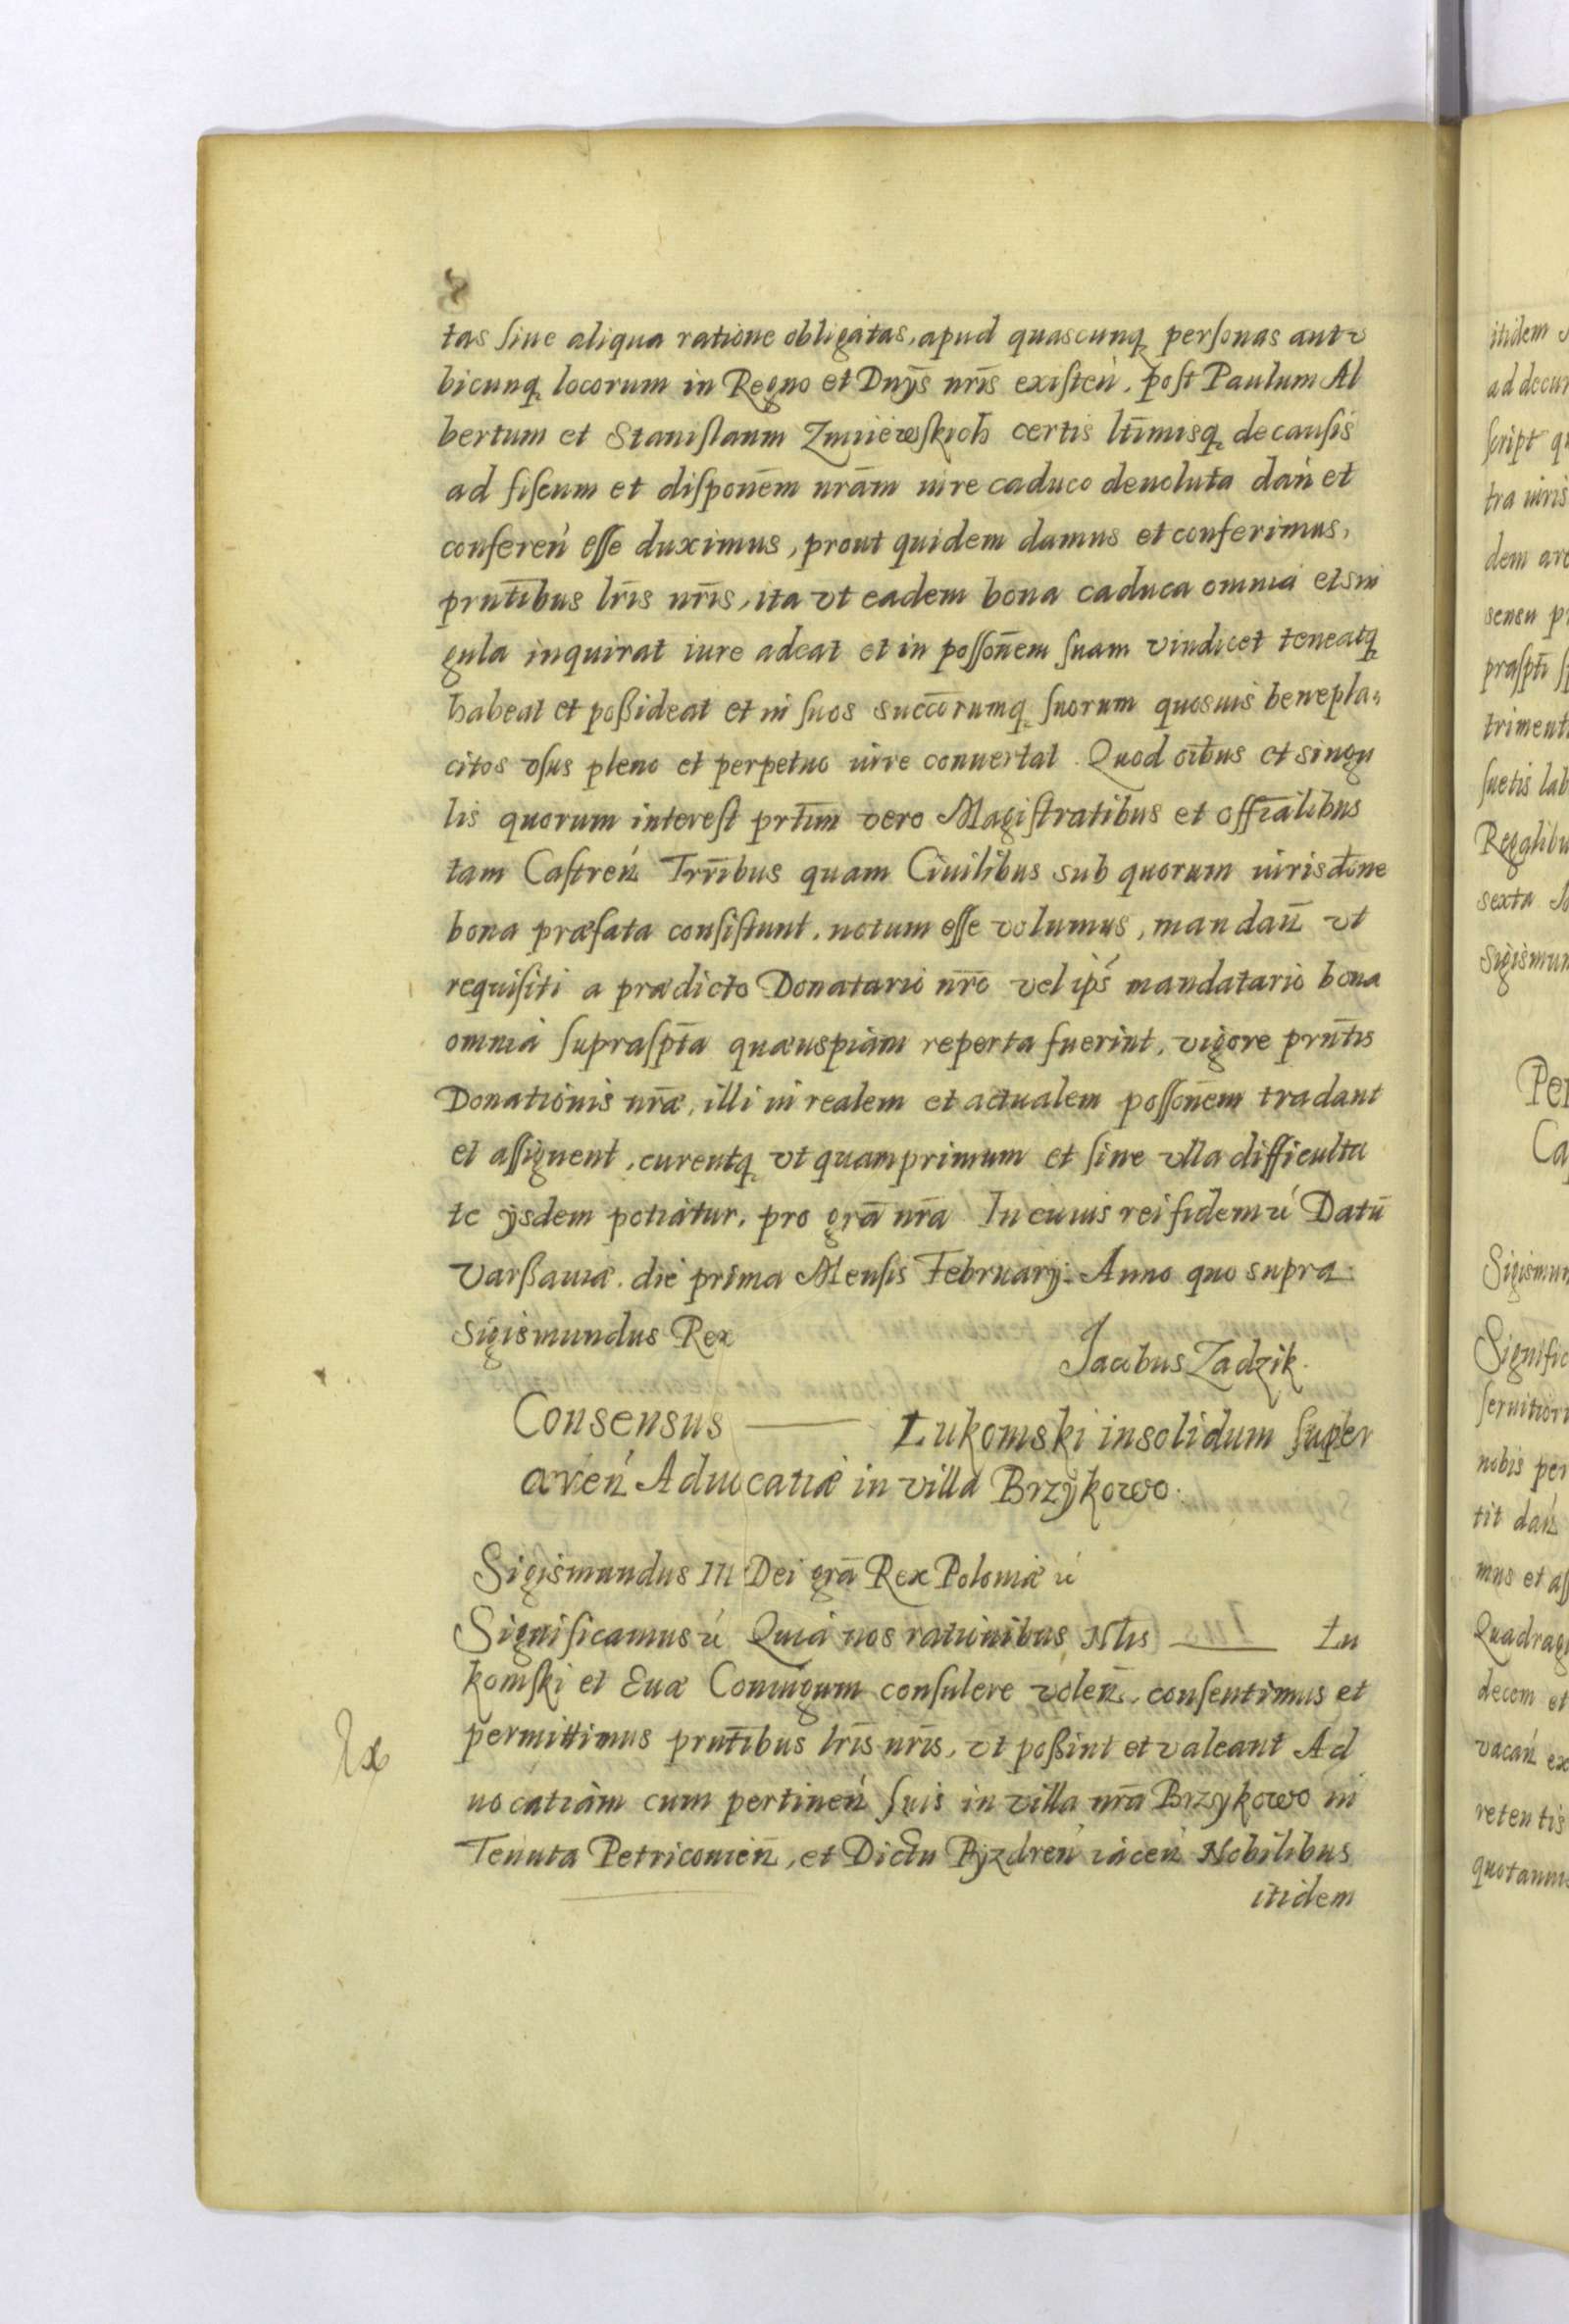 8
tas siue aliqua ratione obligatas, apud quascunq personas aut v
bicunq locorum in Regno et Dnÿs nr̄is existeń. post Paulum Al
bertum et Stanislaum Zmiiewskich certis ltīmisq de causis
ad fiscum et disponēm nrām iure caduco deuoluta dań et
confereń esse duximus, prout quidem damus et conferimus,
prntībus lrīs nrīs, ita vt eadem bona caduca omnia et sin
gula inquirat iure adeat et in possonēm suam vindicet teneatq
habeat et possideat et in suos succōrumq suorum quosuis benepla„
citos vsus pleno et perpetuo iure conuertat. Quod oībus et singu
lis quorum interest prtīm vero Magistratibus et offīalibus
tam Castreń Trrībus quam Ciuilibus sub quorum iurisdōne
bona præfata consistunt, notum esse volumus, mandań vt
requisiti a prædicto Donatario nrō vel ipś mandatario bona
omnia supraspta quæuspiam reperta fuerint, vigore prntīs
Donationis nræ, illi in realem et actualem possonēm tradant
et assignent, curentq vt quamprimum et sine vlla difficulta
te ÿsdem potiatur, pro grā nrā In cuius rei fidem ú Datū
Varssauiæ. die prima Mensis Februarÿ. Anno quo supra.
Sigismundus Rex
Jacobus Zadzik.
Consensus —— Łukomski insolidum super
areń Aduocatiæ in villa Brzÿkowo.
Sigismundus III Dei grā Rex Poloniæ ú
Significamus ú Quia nos rationibus Nlis —— Łu
komski et Euæ Coniugum consulere voleń. consentimus et
permittimus prntībus lrīs nrīs, vt possint et valeant Ad
uocatiam cum pertineń suis in villa nrā Brzÿkowo in
Tenuta Petricouień, et Dictu Pÿzdreń iaceń Nobilibus
itidem